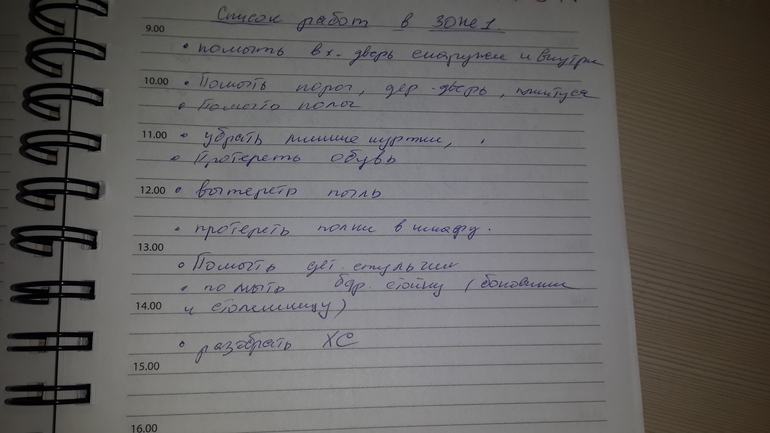 Список работ в зоне 1.
9.00
• помыть вх. дверь снаружи и внутри
10.00
• Помыть порог, дер. дверь, плинтуса
• Помыть полог
11.00
• убрать лишние куртки,
• Протереть обувь
12.00
• вытереть пыль
• протереть полки в шкафу.
13.00
• Помыть дет. стульчик
• помыть бар. стойку (боковини
14.00
и столешницу)
• разобрать ХС
15.00
16.00